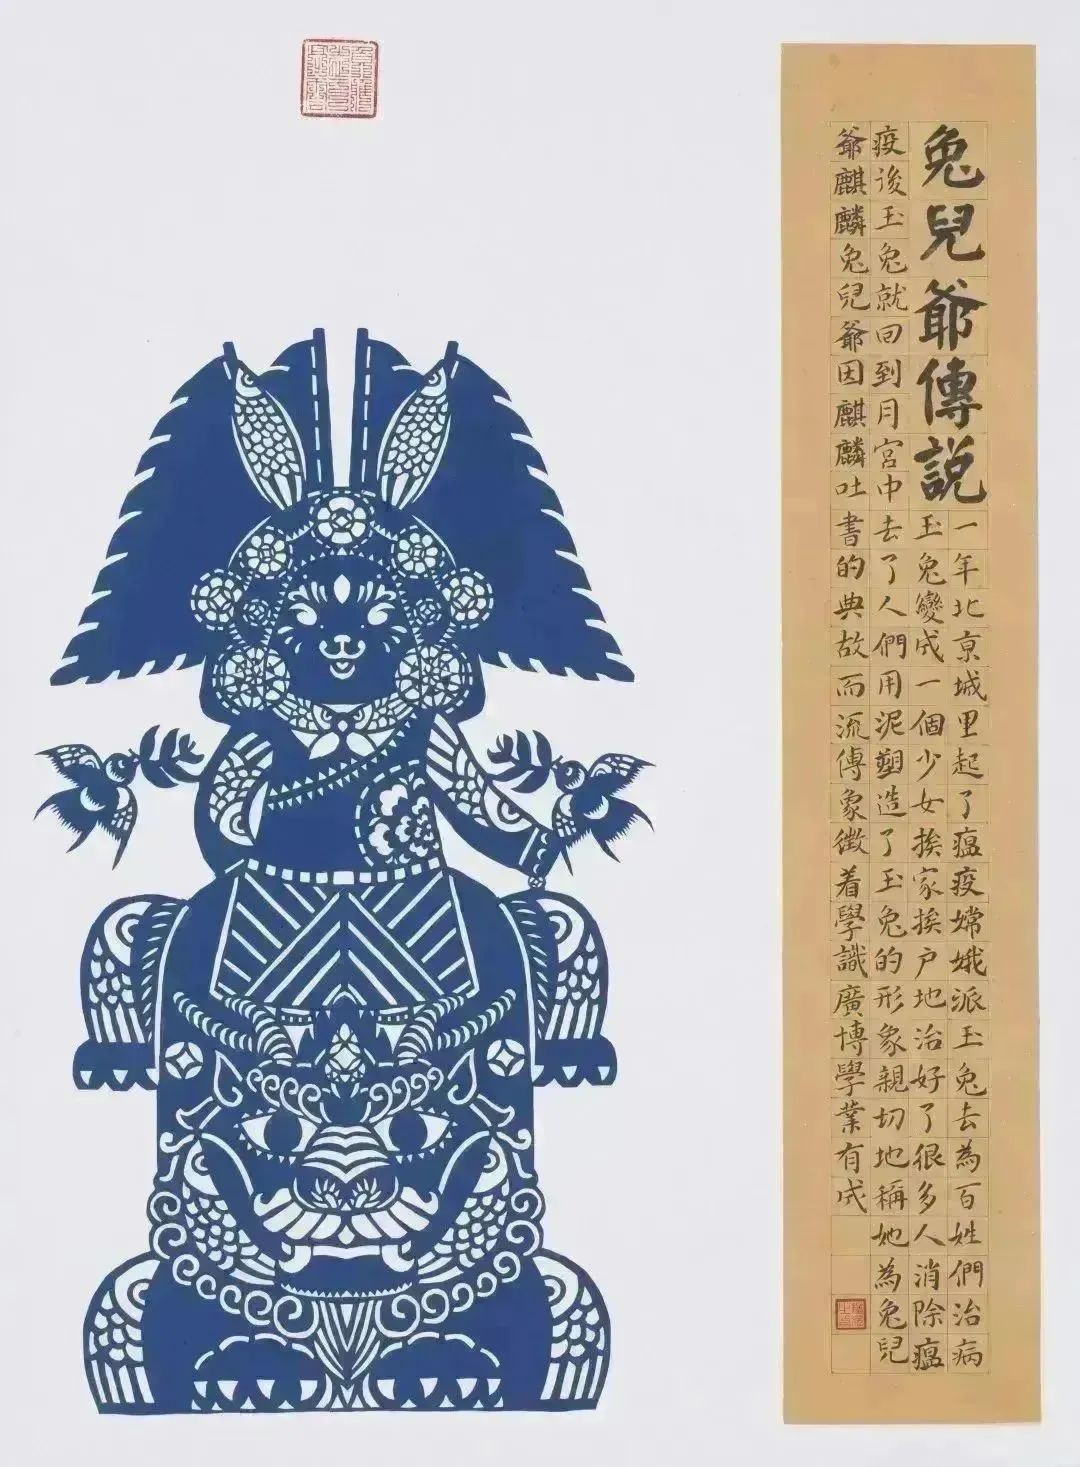 兔兒爺傳説
一年北京城里起了瘟疫嫦娥派玉兔去為百姓們治病
玉兔變成一個少女挨家挨户地治好了很多人消除瘟
疫後玉兔就回到月宮中去了人們用泥塑造了玉兔的形象親切地稱她為兔兒
爺麒麟兔兒爺因麒麟吐書的典故而流傳象徵着學識廣博學業有成